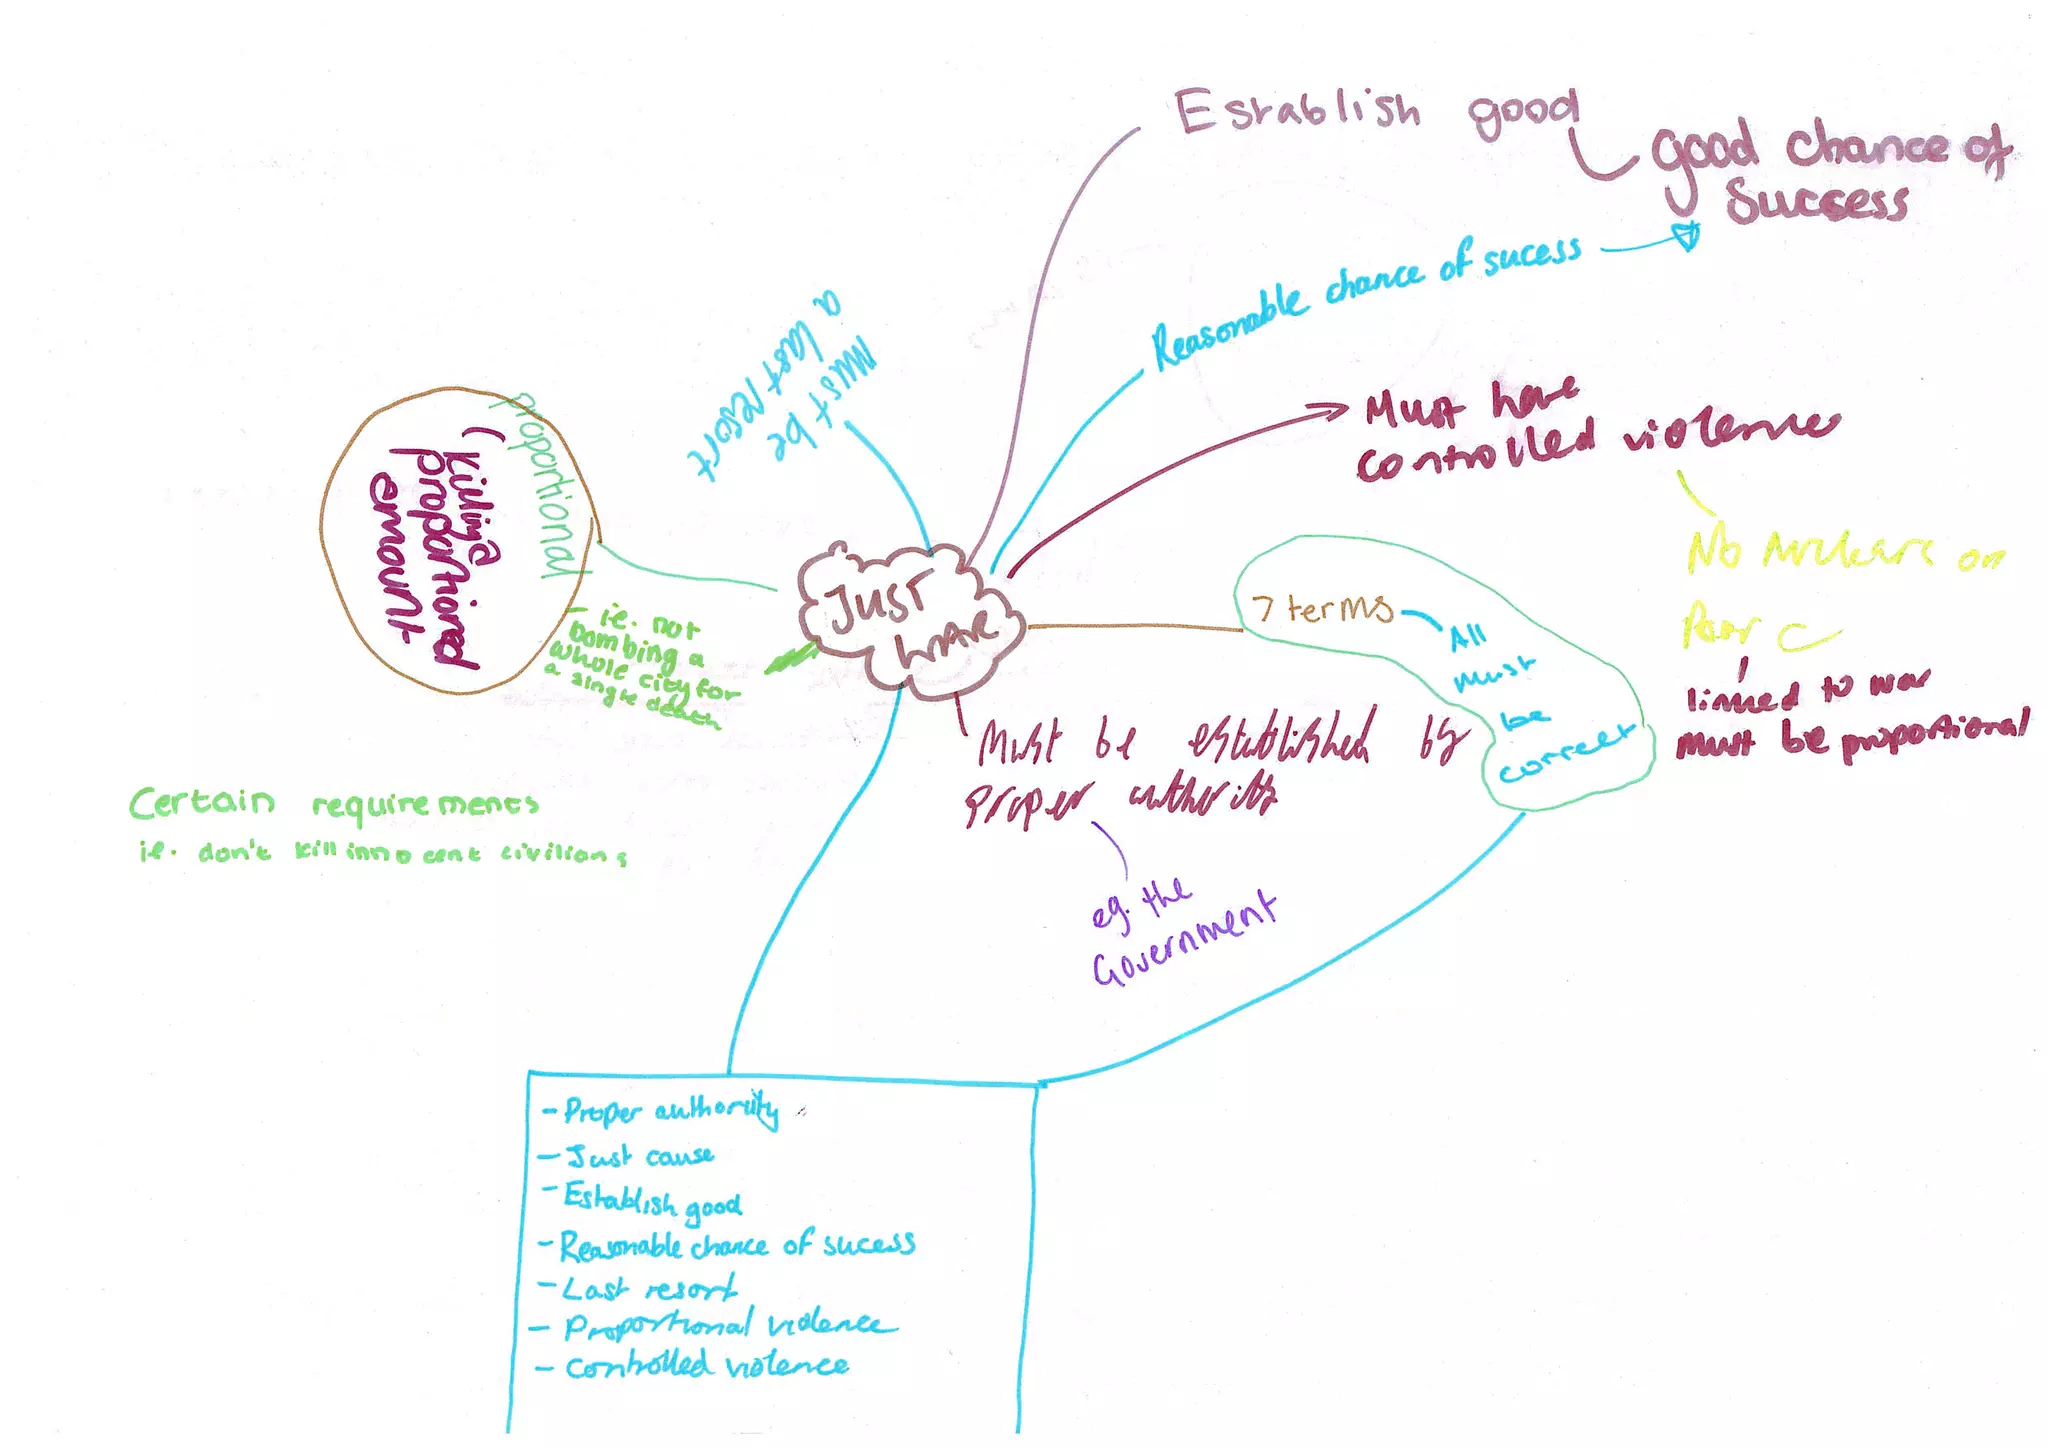 Establish good
good chance of
success
Reasonable chance of sucess
Must be
a last resort
Must have
controlled violence
No
linked to war
must be proportional
proportional
(Killing
proportional
emount
- i.e. not
bombing a
whole city for
a single death
JUST
WAR
7 terms
All
must
be
correct
Must be established by
proper authority
eg. the
Government
Certain requirements
i.e. don't kill innocent civilians
- Proper authority
- Just cause
- Establish good
- Reasonable chance of sucess
- Last resort
- Proportional violence
- Controlled violence